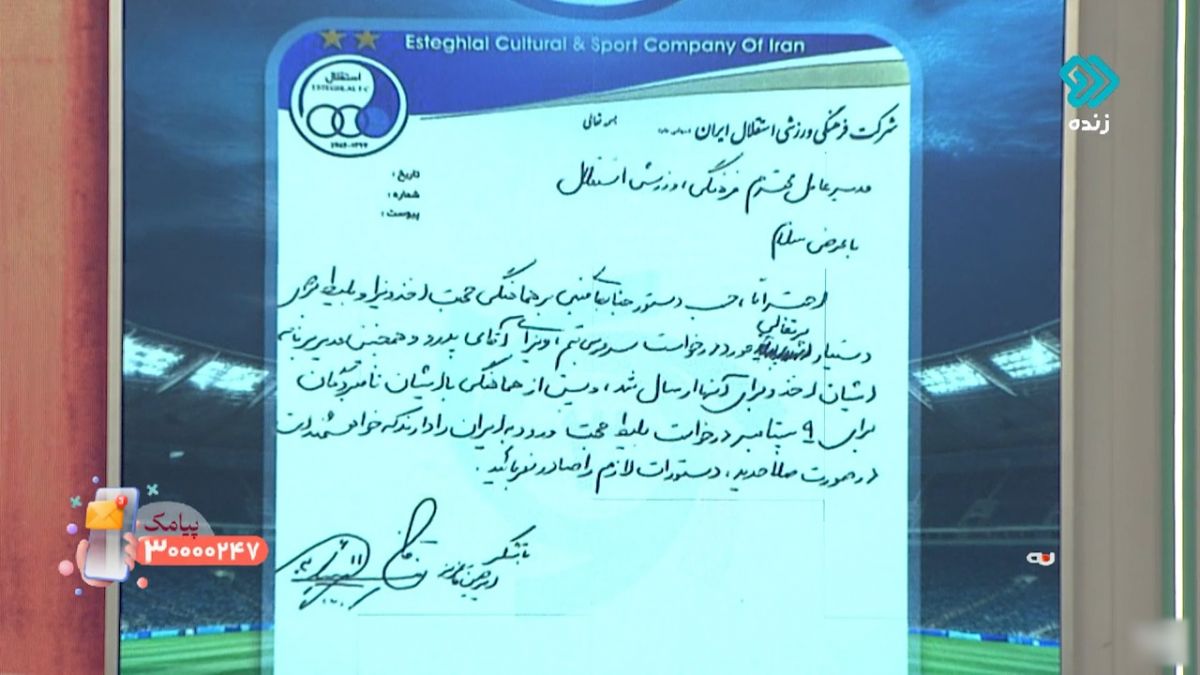 Esteghlal Cultural & Sport Company Of Iran
استقلال
ESTEGHLAL F.C
زنده
بسمه تعالی
شرکت فرهنگی ورزشی استقلال ایران
تاریخ :
شماره :
پیوست :
مدیرعامل محترم فرهنگی ورزشی استقلال
با عرض سلام
احتراما، حسب دستور جنابعالی مبنی بر هماهنگی جهت اخذ ویزا و بلیط برای
پرتغالی
دستیار مورد درخواست سرمربی تیم، ویزای آقای پدرو و همچنین مدیر برنامه
ایشان اخذ و برای آنها ارسال شد، و پس از هماهنگی با ایشان نامبردگان
برای ۹ سپتامبر درخواست بلیط جهت ورود به ایران را دارند که خواهشمند است
در صورت صلاحدید، دستورات لازم را صادر نمائید.
با تشکر
پیامک
۳۰۰۰۰۲۴۷